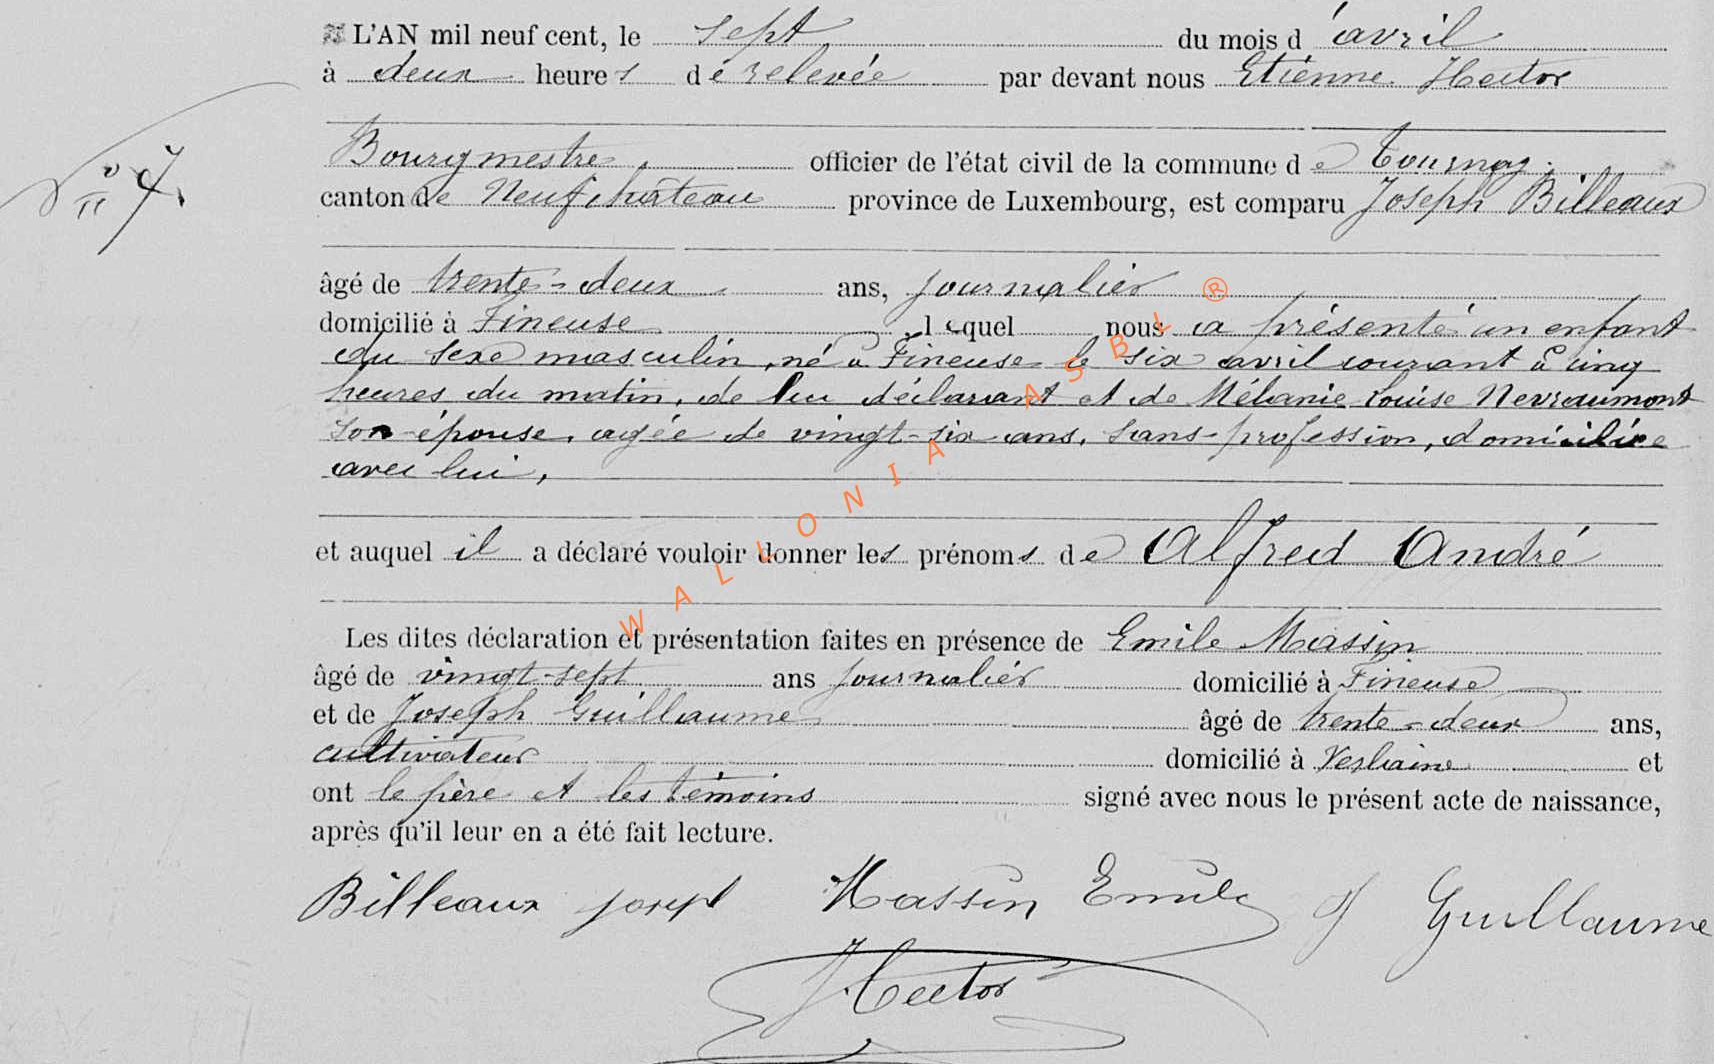 L'AN mil neuf cent, le sept du mois d'avril
à deux heures de relevée par devant nous Etienne Hector
Bourgmestre, officier de l'état civil de la commune de Tournay,
N° 7.
canton de Neufchâteau province de Luxembourg, est comparu Joseph Billeaux
âgé de trente-deux ans, journalier
domicilié à Fineuse lequel nous a présenté un enfant
du sexe masculin, né à Fineuse le six avril courant à cinq
heures du matin, de lui déclarant et de Mélanie Louise Nevraumont
son épouse, agée de vingt-six ans, sans profession, domiciliée
avec lui,
et auquel il a déclaré vouloir donner les prénoms de Alfred André
Les dites déclaration et présentation faites en présence de Emile Massin
âgé de vingt-sept ans journalier domicilié à Fineuse
et de Joseph Guillaume âgé de trente-deux ans,
cultivateur domicilié à Verlaine et
ont le père et les témoins signé avec nous le présent acte de naissance,
après qu'il leur en a été fait lecture.
Billeaux Joseph Massin Emile J Guillaume
Hector
WALLONIA ASBL ®